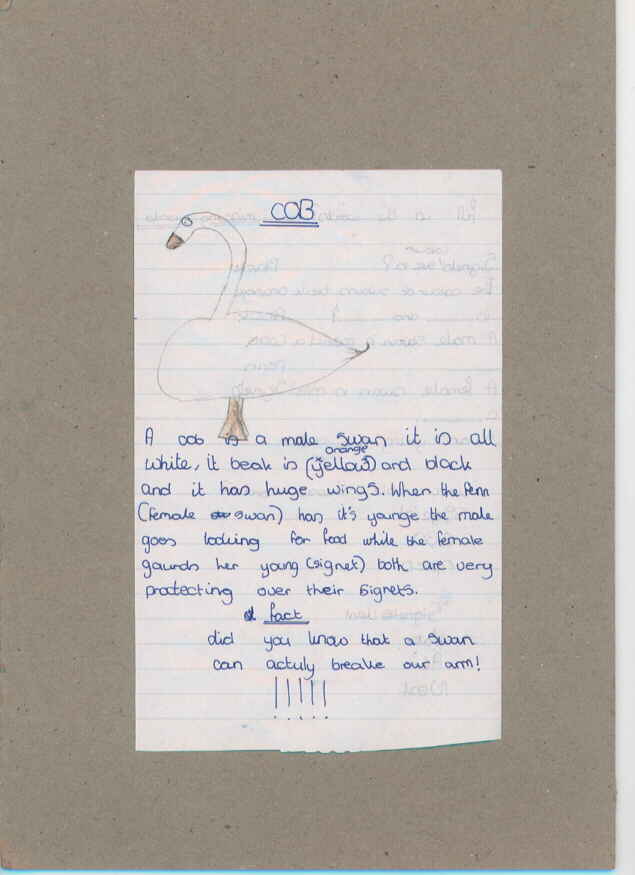 COB
A cob is a male swan it is all
orange
white, it beak is (yellow) and black
and it has huge wings. When the Penn
(female swan) has it's younge the male
goes looking for food while the female
gaurds her young (signet) both are very
protecting over their signets.
fact
did you know that a swan
can actuly breake our arm!
! ! ! ! !